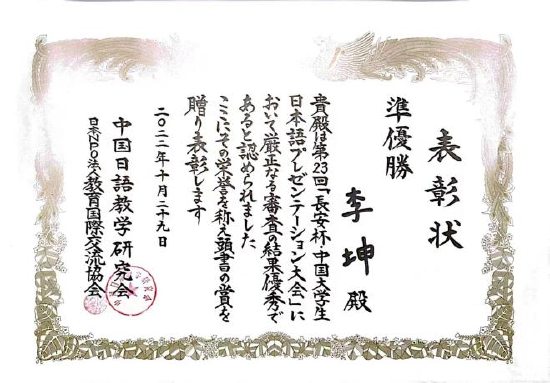 表彰状
準優勝
李坤 殿
貴殿は第23回「長安杯・中国大学生
日本語プレゼンテーション大会」に
おいて厳正なる審査の結果優秀で
あると認められました
ここにその栄誉を称え頭書の賞を
贈り表彰します
二〇二二年十月二十九日
中国日語教学研究会
日本NPO法人教育国際交流協会